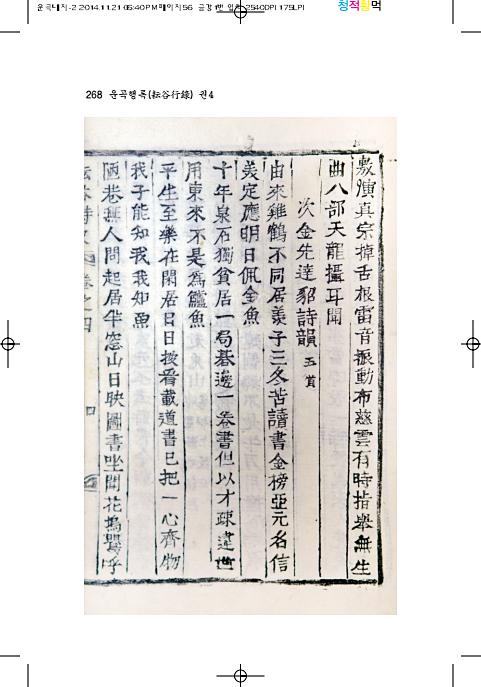 운곡대지-2 2014.11.21 05:40 PM 페이지56
2540DPI 175LPI
청적황먹
268 운곡행록(耘谷行錄) 권4
敷演真宗掉舌根雷音振動布慈雲有時指擧無生
曲八部天龍攝耳聞
次金先達貂詩韻 五首
由來雞鶴不同居羨子三冬苦讀書金榜亞元名信
美定應明日佩金魚
十年泉石獨貧居一局碁邊一卷書但以才疎違世
用東來不是爲鱸魚
平生至樂在閑居日日披看載道書已把一心齊物
我子能知我我知魚
陋巷無人問起居半窓山日映圖書坐聞花塢鸎呼
卷之四
四